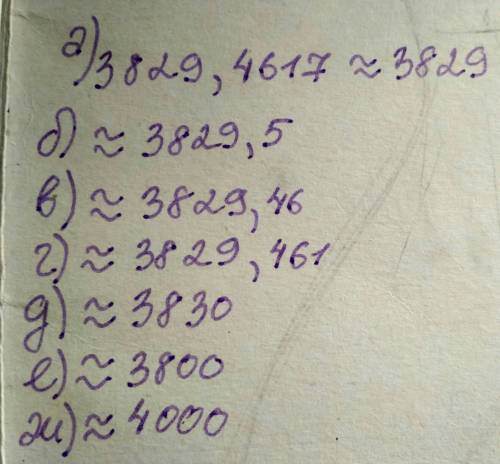 а) 3829,4617 ≈ 3829
б) ≈ 3829,5
в) ≈ 3829,46
г) ≈ 3829,461
д) ≈ 3830
е) ≈ 3800
ж) ≈ 4000